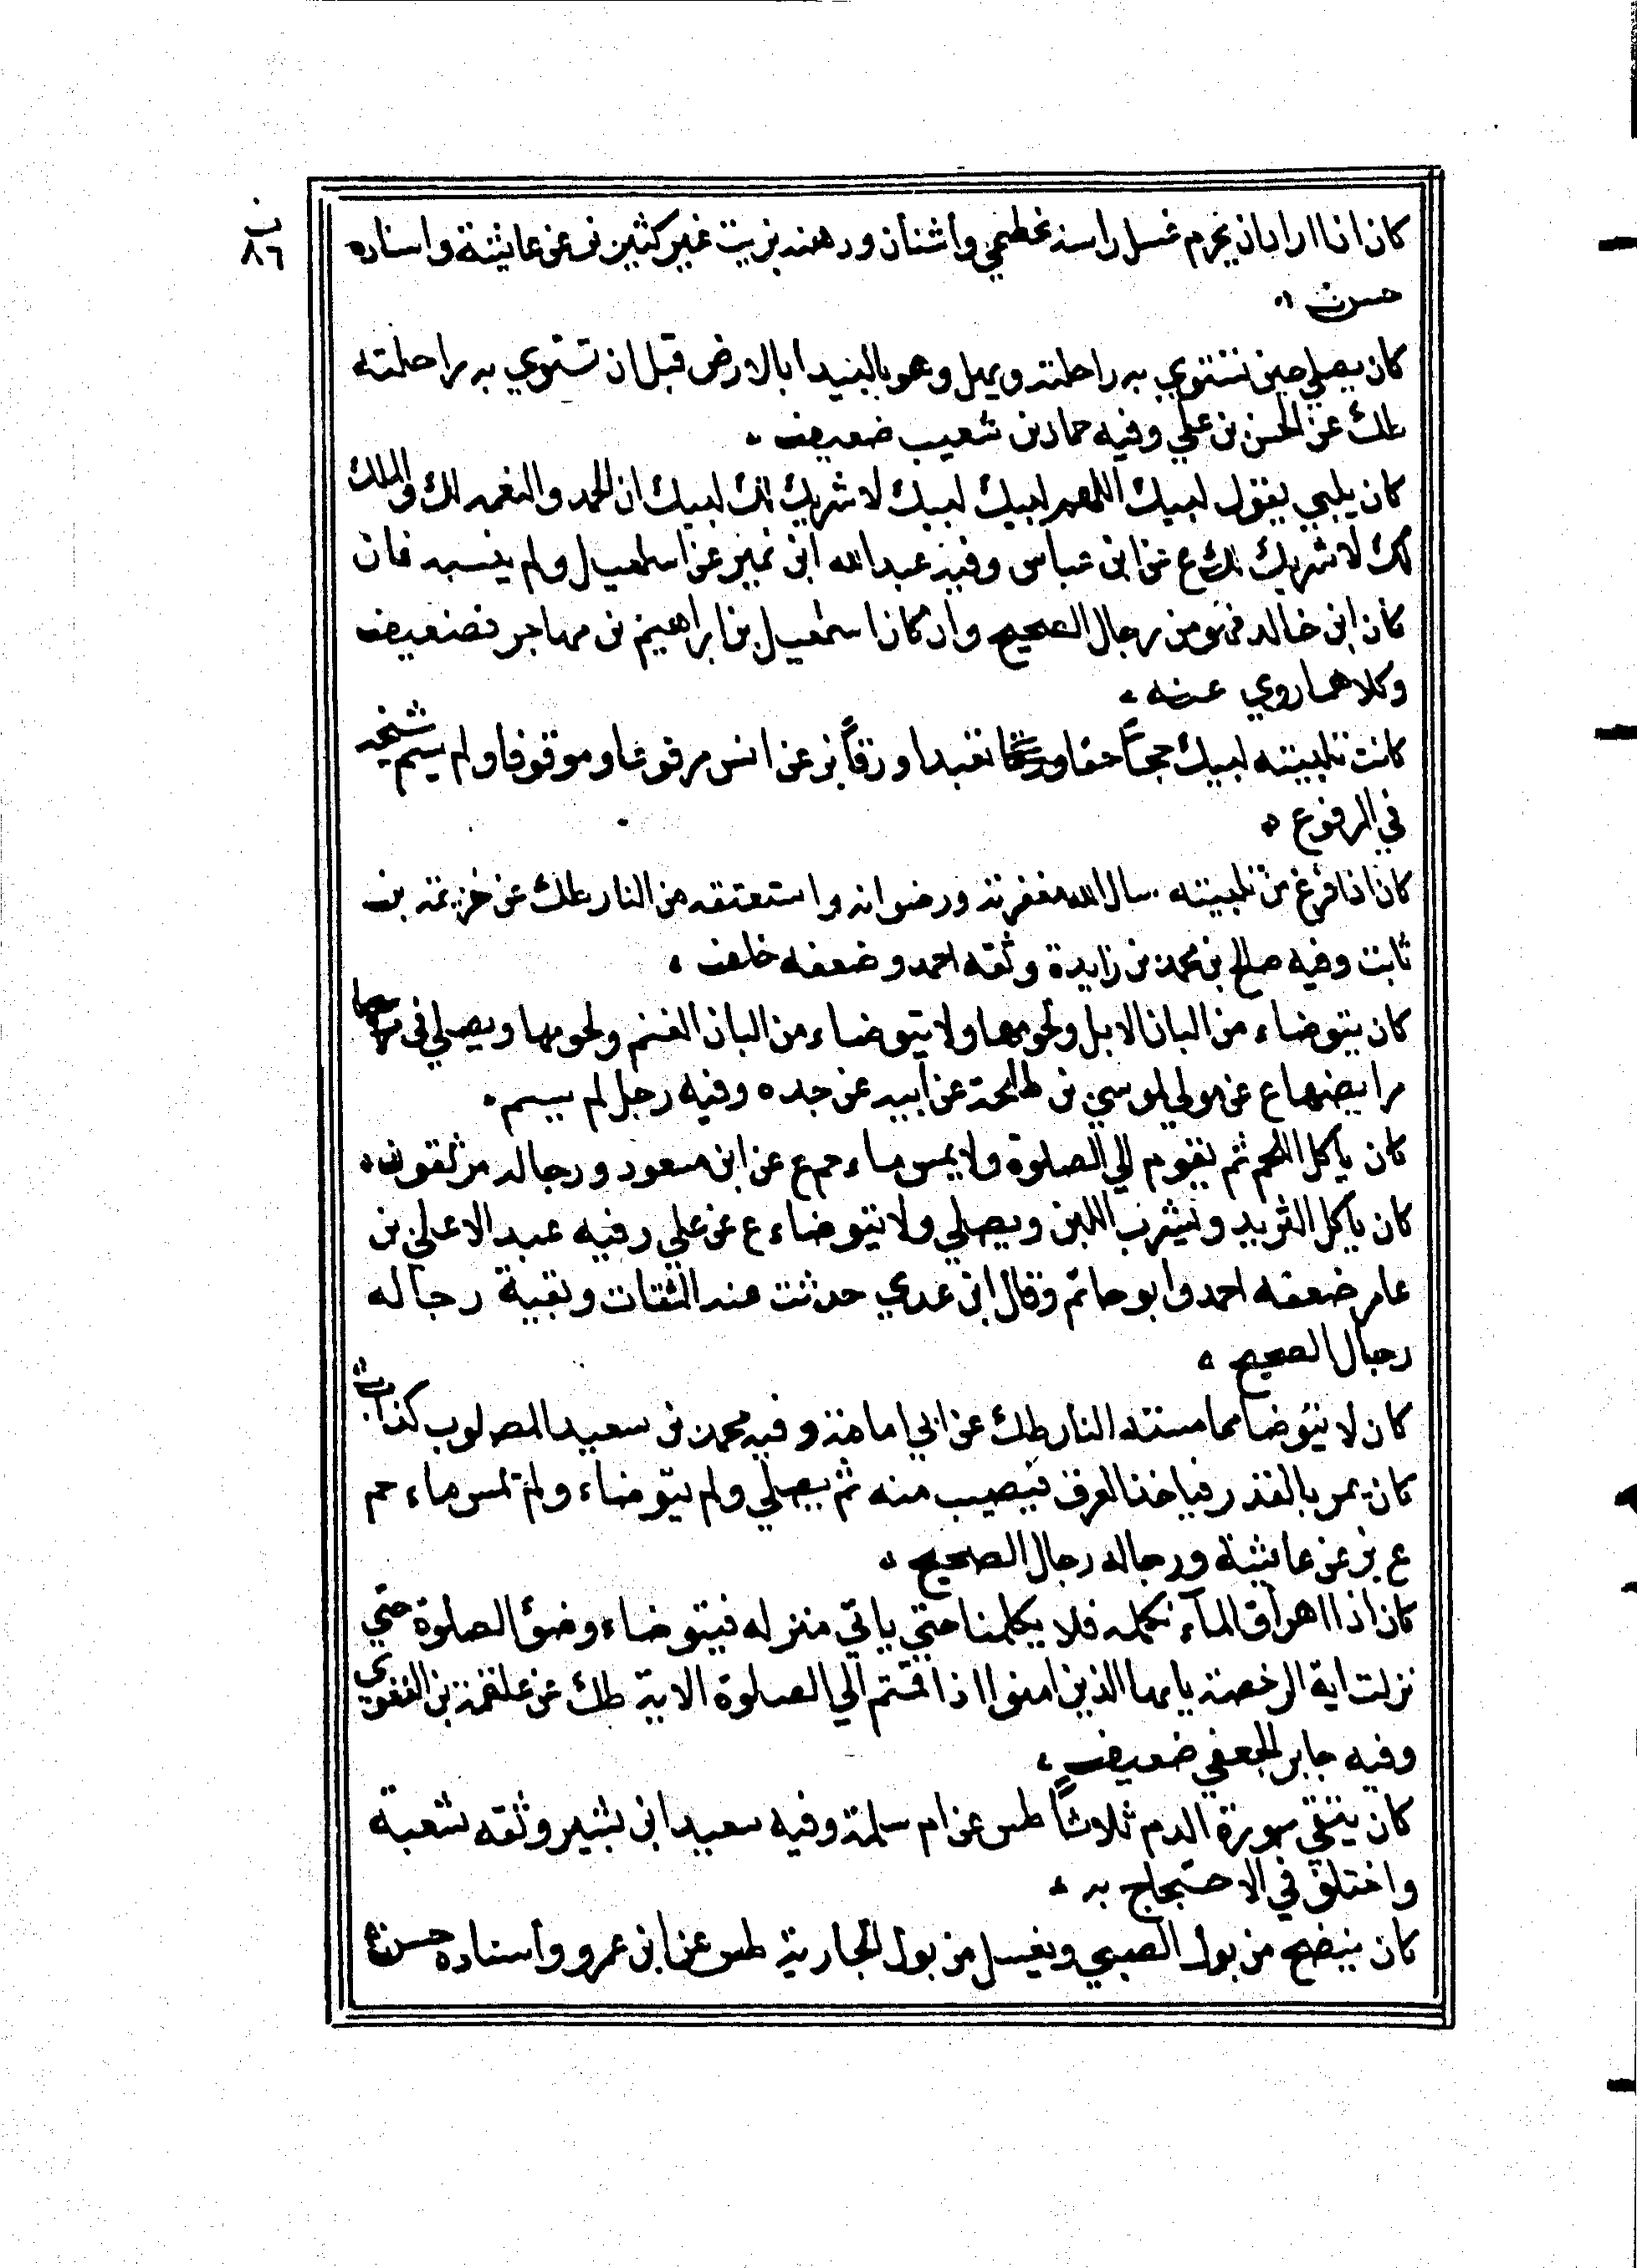 ب
٨٦
كان اذا اراد ان يحرم غسل راسه بخطمي واشنان ودهنه بزيت غير كثير بز عن عايشة واسناده
حسن
كان يصلي حين تستوي به راحلته ويهل وهو بالبيدا بالارض قبل ان تستوي به راحلته
طك عن الحسن بن علي وفيه حماد بن شعيب ضعيف
كان يلبي يقول لبيك اللهم لبيك لبيك لا شريك لك لبيك ان الحمد والنعمه لك والملك
لك لا شريك لك ع عن ابن عباس وفيه عبد الله ابن نمير عن اسمعيل ولم ينسبه فان
كان ابن خالد فهو من رجال الصحيح وان كان اسمعيل بن ابراهيم بن مهاجر فضعيف
وكلاهما روي عنه
كانت تلبيته لبيك حجاً حقا تعبدا ورقاً بز عن انس مرفوعا وموقوفا ولم يسم شيخه
في المرفوع
كان اذا فرغ من تلبيته سال الله مغفرته ورضوانه واستعتقه من النار طك عن خزيمة بن
ثابت وفيه صالح بن محمد بن زايدة وثقه احمد وضعفه خلف
كان يتوضاء من البان الابل ولحومها ولا يتوضاء من البان الغنم ولحومها ويصلي في
مرابضها ع عن مولي لموسي بن طلحة عن ابيه عن جده وفيه رجل لم يسم
كان ياكل اللحم ثم يقوم الي الصلوة ولا يمس ماء حم ع عن ابن مسعود ورجاله موثقون
كان ياكل الثريد ويشرب اللبن ويصلي ولا يتوضاء ع عن علي وفيه عبد الاعلي بن
عامر ضعفه احمد وابو حاتم وقال ابن عدي حدثت عنه الثقات وبقية رجاله
رجال الصحيح
كان لا يتوضا مما مسته النار طك عن ابي امامة وفيه محمد بن سعيد المصلوب كذاب
كان يمر بالقدر فياخذ العرق فيصيب منه ثم يصلي ولم يتوضاء ولم تمس ماء حم
ع بز عن عايشة ورجاله رجال الصحيح
كان اذا اهراق المآء نكلمه فلا يكلمنا حتي ياتي منزله فيتوضاء وضؤ الصلوة حتي
نزلت اية الرخصة يايها الذين امنوا اذا قمتم الي الصلوة الاية طك عن علقمة بن الفغوي
وفيه جابر الجعفي ضعيف
كان يتقي سورة الدم ثلاثاً طس عن ام سلمة وفيه سعيد ابن بشير وثقه شعبة
واختلف في الاحتجاج به
كان ينضح من بول الصبي ويغسل من بول الجارية طس عن ابن عمرو واسناده حسن